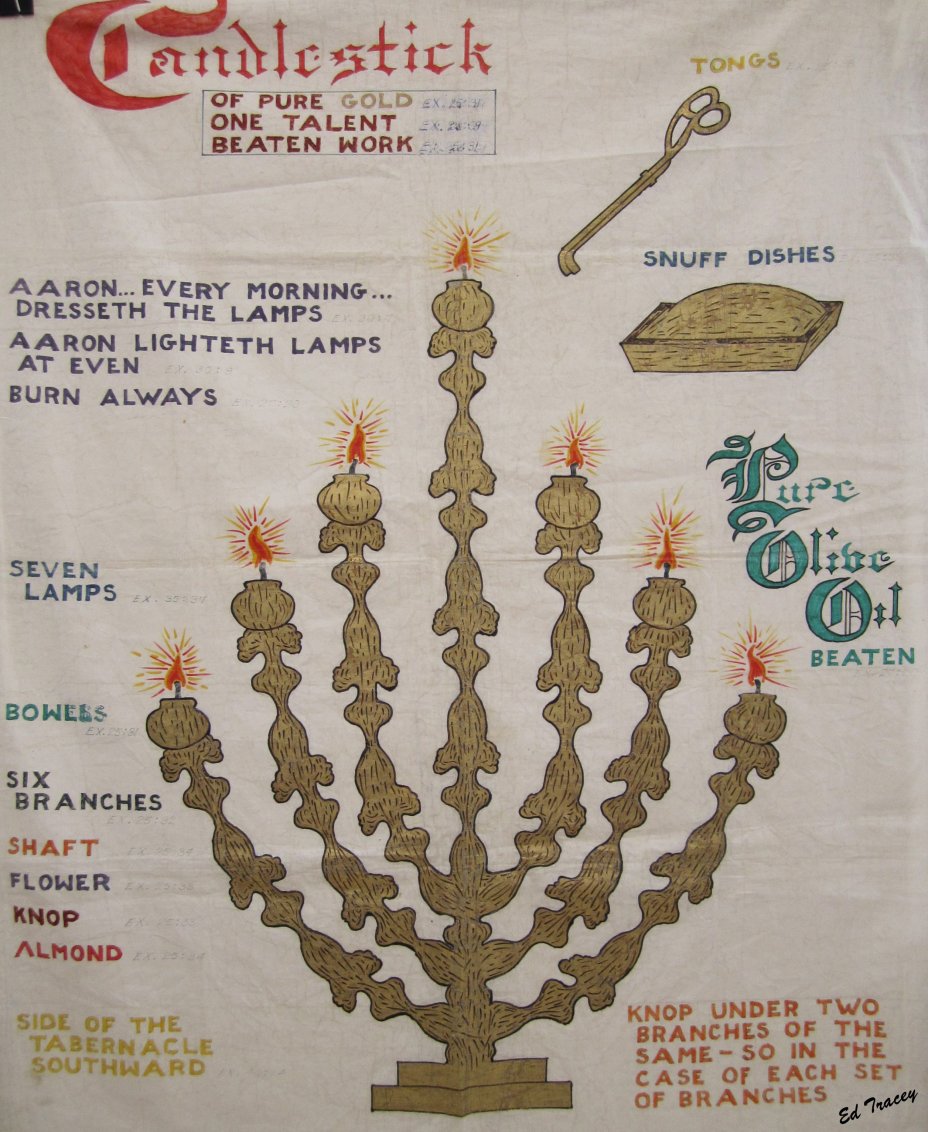 Candlestick
OF PURE GOLD EX. 25:31
ONE TALENT
BEATEN WORK
TONGS
SNUFF DISHES
AARON... EVERY MORNING...
DRESSETH THE LAMPS
AARON LIGHTETH LAMPS
AT EVEN
BURN ALWAYS
Pure
Olive
Oil
BEATEN
SEVEN
LAMPS
BOWELS
EX. 25:31
SIX
BRANCHES
SHAFT
FLOWER
KNOP
ALMOND
SIDE OF THE
TABERNACLE
SOUTHWARD
KNOP UNDER TWO
BRANCHES OF THE
SAME - SO IN THE
CASE OF EACH SET
OF BRANCHES
Ed Tracey